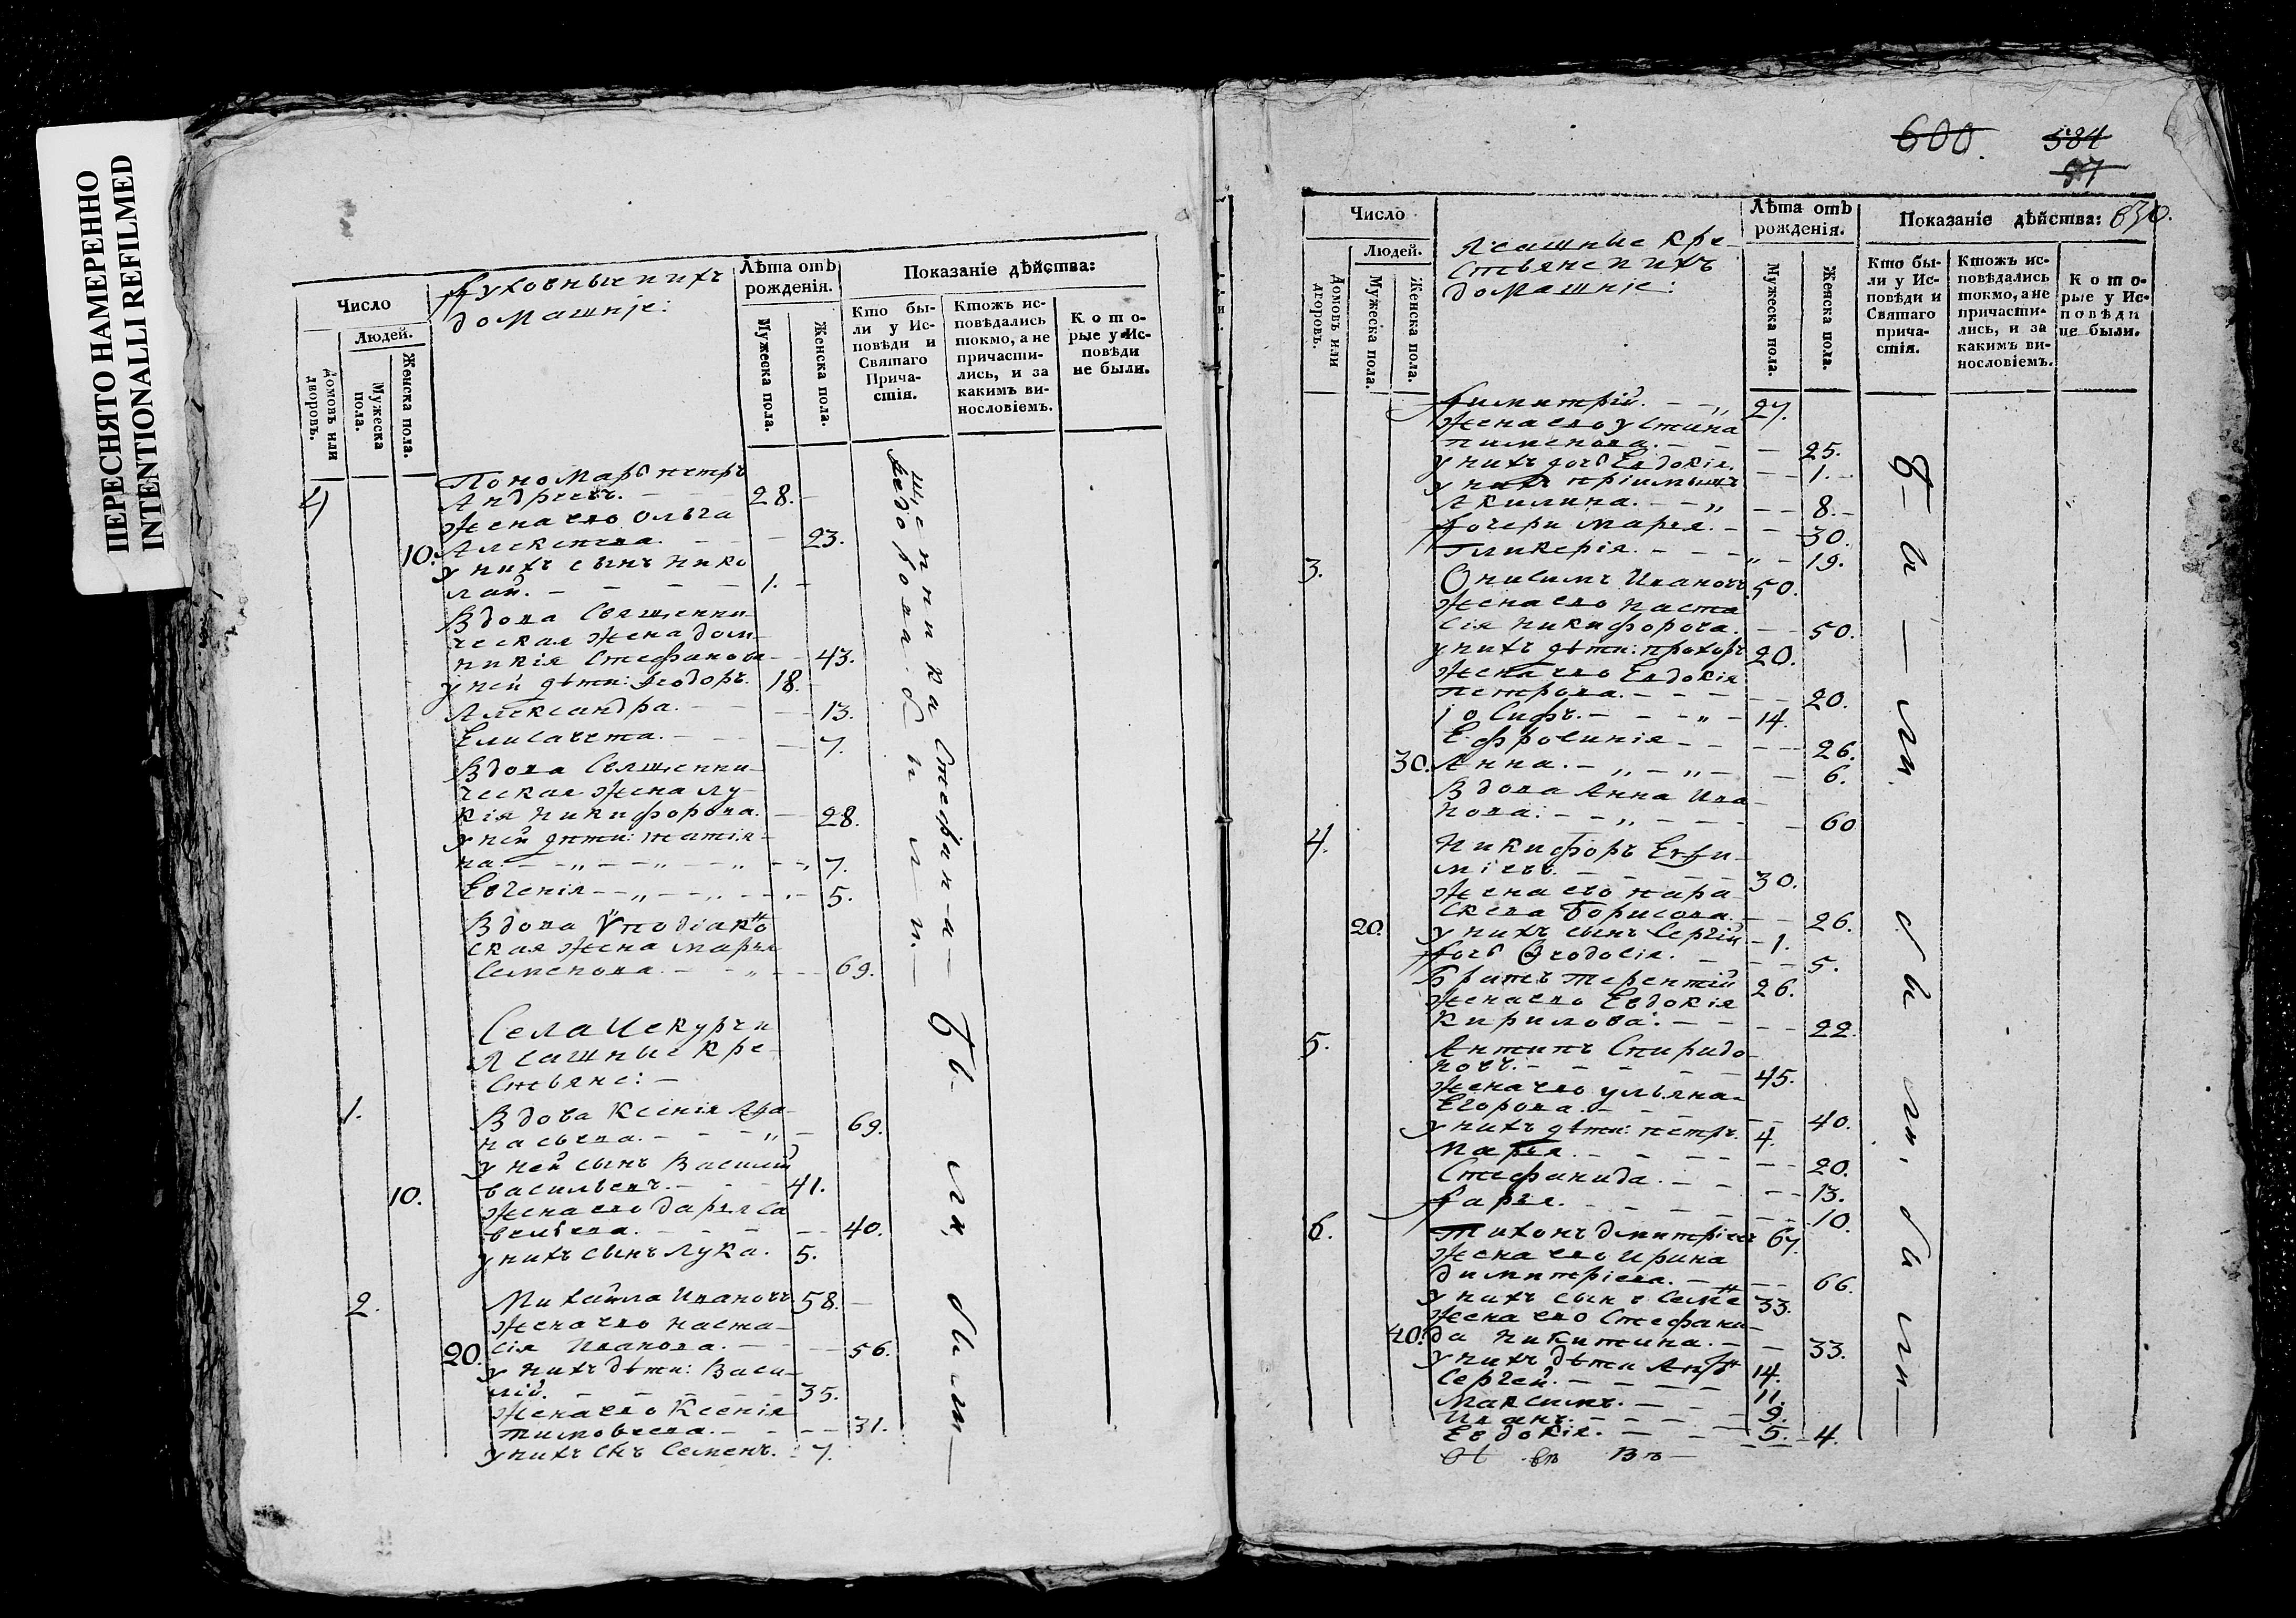 ПЕРЕСНЯТО НАМЕРЕННО
INTENTIONALLI REFILMED
Число
Людей.
Домовъ или дворовъ.
Мужеска пола.
Женска пола.
Духовные ихъ
домашніе:
Лѣта отъ рожденія.
Мужеска пола.
Женска пола.
Показаніе дѣйства:
Кто бы-
ли у Ис-
повѣди и
Святаго
Прича-
стія.
Ктожъ ис-
повѣдались
токмо, а не
причасти-
лись, и за
какимъ ви-
нословіемъ.
Кото-
рые у Ис-
повѣди
не были.
4 Пономарь петръ
Андреевъ. 28.
жена ево Ольга
10. Алексеева. 23.
у нихъ сынъ Нико
лай. 1.
Вдова Священни-
ческая жена дом-
никія Стефанова 43.
у ней дѣти: Феодоръ. 18.
Александра. 13.
Елисавета. 7.
Вдова Священни-
ческая жена лу-
кія Никифорова. 28.
у ней дѣти: татія-
на. 7.
Евгенія 5.
Вдова
ская жена марья
Семенова. 69.
Села
Ясашные кре-
стьяне:
1. Вдова Ксенія Афа-
насьева. 69.
у ней сынъ Василій
10. васильевъ. 41.
жена ево дарья Са
вельева. 40.
у нихъ сынъ лука. 5.
2. Михайла Ивановъ 58.
жена ево наста-
20. сія Иванова. 56.
у нихъ дѣти: Васи-
лій. 35.
жена ево Ксенія
тимовеева. 31.
у нихъ снъ Семенъ. 7.
были
были
600.
584
97
630.
Число
Людей.
Домовъ или дворовъ.
Мужеска пола.
Женска пола.
Ясашные кре-
стьяне и ихъ
домашніе:
Лѣта отъ рожденія.
Мужеска пола.
Женска пола.
Показаніе дѣйства:
Кто бы-
ли у Ис-
повѣди и
Святаго
прича-
стія.
Ктожъ ис-
повѣдались
токмо, а не
причасти-
лись, и за
какимъ ви-
нословіемъ.
Кото-
рые у Ис-
повѣди
не были.
Димитрій. 27.
жена ево устина
пименова. 25.
у нихъ дочь Евдокія. 1.
у нихъ пріимышъ
Акилина. 8.
дочери марья. 30.
Гликерія. 19.
3. Онисимъ Ивановъ 50.
жена ево наста
сія никифорова. 50.
у нихъ дѣти: прохоръ 20.
жена ево Евдокія
петрова. 20.
іосифъ. 14.
Ефросинія 26.
30. Анна. 6.
Вдова Анна Ива
нова: 60
4. Никифоръ Евфи-
міевъ. 30.
жена ево пара
скева Борисова. 26.
20. у нихъ сынъ Сергій 1.
дочь Феодосія. 5.
Братъ терентій 26.
жена ево Евдокія
Кирилова. 22.
5. Антипъ Спиридо
новъ. 45.
жена ево ульяна
Егорова. 40.
у нихъ дѣти: петръ. 4.
марья. 20.
Стефанида. 13.
дарья. 10.
6. Тихонъ димитріевъ 67.
жена ево Ирина
димитріева. 66.
у нихъ сынъ Семенъ 33.
жена ево Стефани-
40. да никитина. 33.
у нихъ дѣти 14.
Сергей. 11.
Максимъ. 9.
Иванъ. 5.
Евдокія. 4.
были
были
были